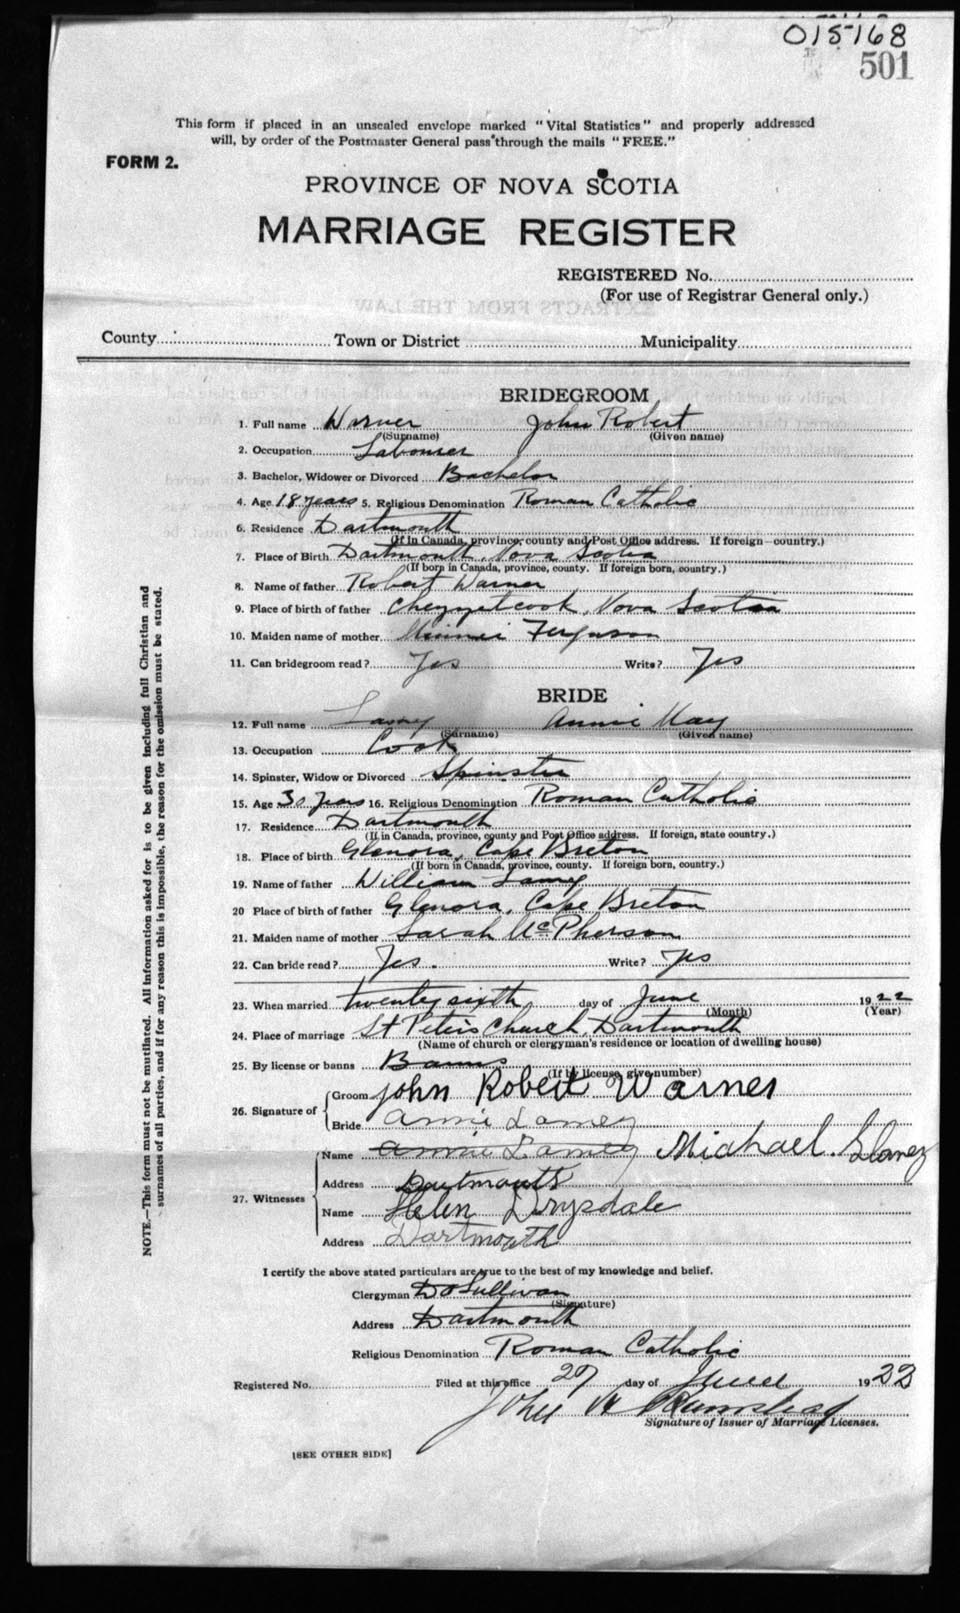 015168
501
This form if placed in an unsealed envelope marked "Vital Statistics" and properly addressed
will, by order of the Postmaster General pass through the mails "FREE."
FORM 2.
PROVINCE OF NOVA SCOTIA
MARRIAGE REGISTER
REGISTERED No.
(For use of Registrar General only.)
County Town or District Municipality
BRIDEGROOM
1. Full name Warner John Robert
(Surname) (Given name)
2. Occupation Labourer
3. Bachelor, Widower or Divorced Bachelor
4. Age 18 years 5. Religious Denomination Roman Catholic
6. Residence Dartmouth
(If in Canada, province, county and Post Office address. If foreign—country.)
7. Place of Birth Dartmouth, Nova Scotia
(If born in Canada, province, county. If foreign born, country.)
8. Name of father Robert Warner
9. Place of birth of father Chezzetcook, Nova Scotia
10. Maiden name of mother Minnie Ferguson
11. Can bridegroom read? Yes Write? Yes
BRIDE
12. Full name Lamey Annie May
(Surname) (Given name)
13. Occupation Cook
14. Spinster, Widow or Divorced Spinster
15. Age 30 years 16. Religious Denomination Roman Catholic
17. Residence Dartmouth
(If in Canada, province, county and Post Office address. If foreign, state country.)
18. Place of birth Glenora, Cape Breton
(If born in Canada, province, county. If foreign born, country.)
19. Name of father William Lamey
20 Place of birth of father Glenora, Cape Breton
21. Maiden name of mother Sarah McPherson
22. Can bride read? Yes. Write? Yes
23. When married twenty sixth day of June 1922
(Month) (Year)
24. Place of marriage St Peter's Church, Dartmouth
(Name of church or clergyman's residence or location of dwelling house)
25. By license or banns Banns
(If by license, give number)
26. Signature of Groom John Robert Warner
Bride Annie Lamey
27. Witnesses
Name Annie Lamey Michael
Address Dartmouth
Name Helen Drysdale
Address Dartmouth
I certify the above stated particulars are true to the best of my knowledge and belief.
Clergyman D O'Sullivan
(Signature)
Address Dartmouth
Religious Denomination Roman Catholic
Registered No. Filed at this office 27 day of June 1922
John
Signature of Issuer of Marriage Licenses.
[SEE OTHER SIDE]
NOTE.—This form must not be mutilated. All information asked for is to be given including full Christian and
surnames of all parties, and if for any reason this is impossible, the reason for the omission must be stated.